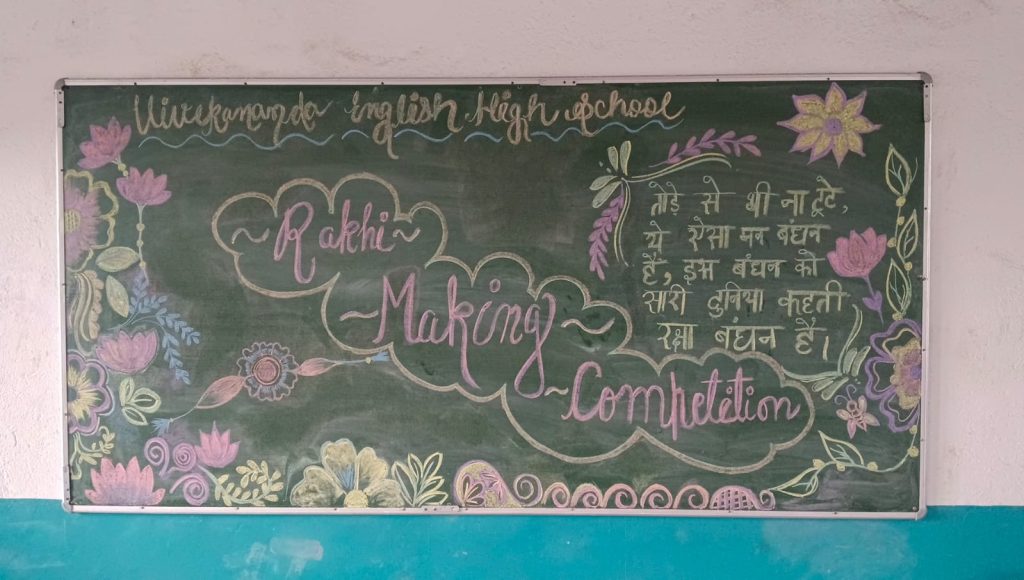 Vivekananda English High School
~ Rakhi ~
~ Making ~
~ Competition
तोड़े से भी ना टूटे,
ये ऐसा मन बंधन
हैं, इस बंधन को
सारी दुनिया कहती
रक्षा बंधन हैं।